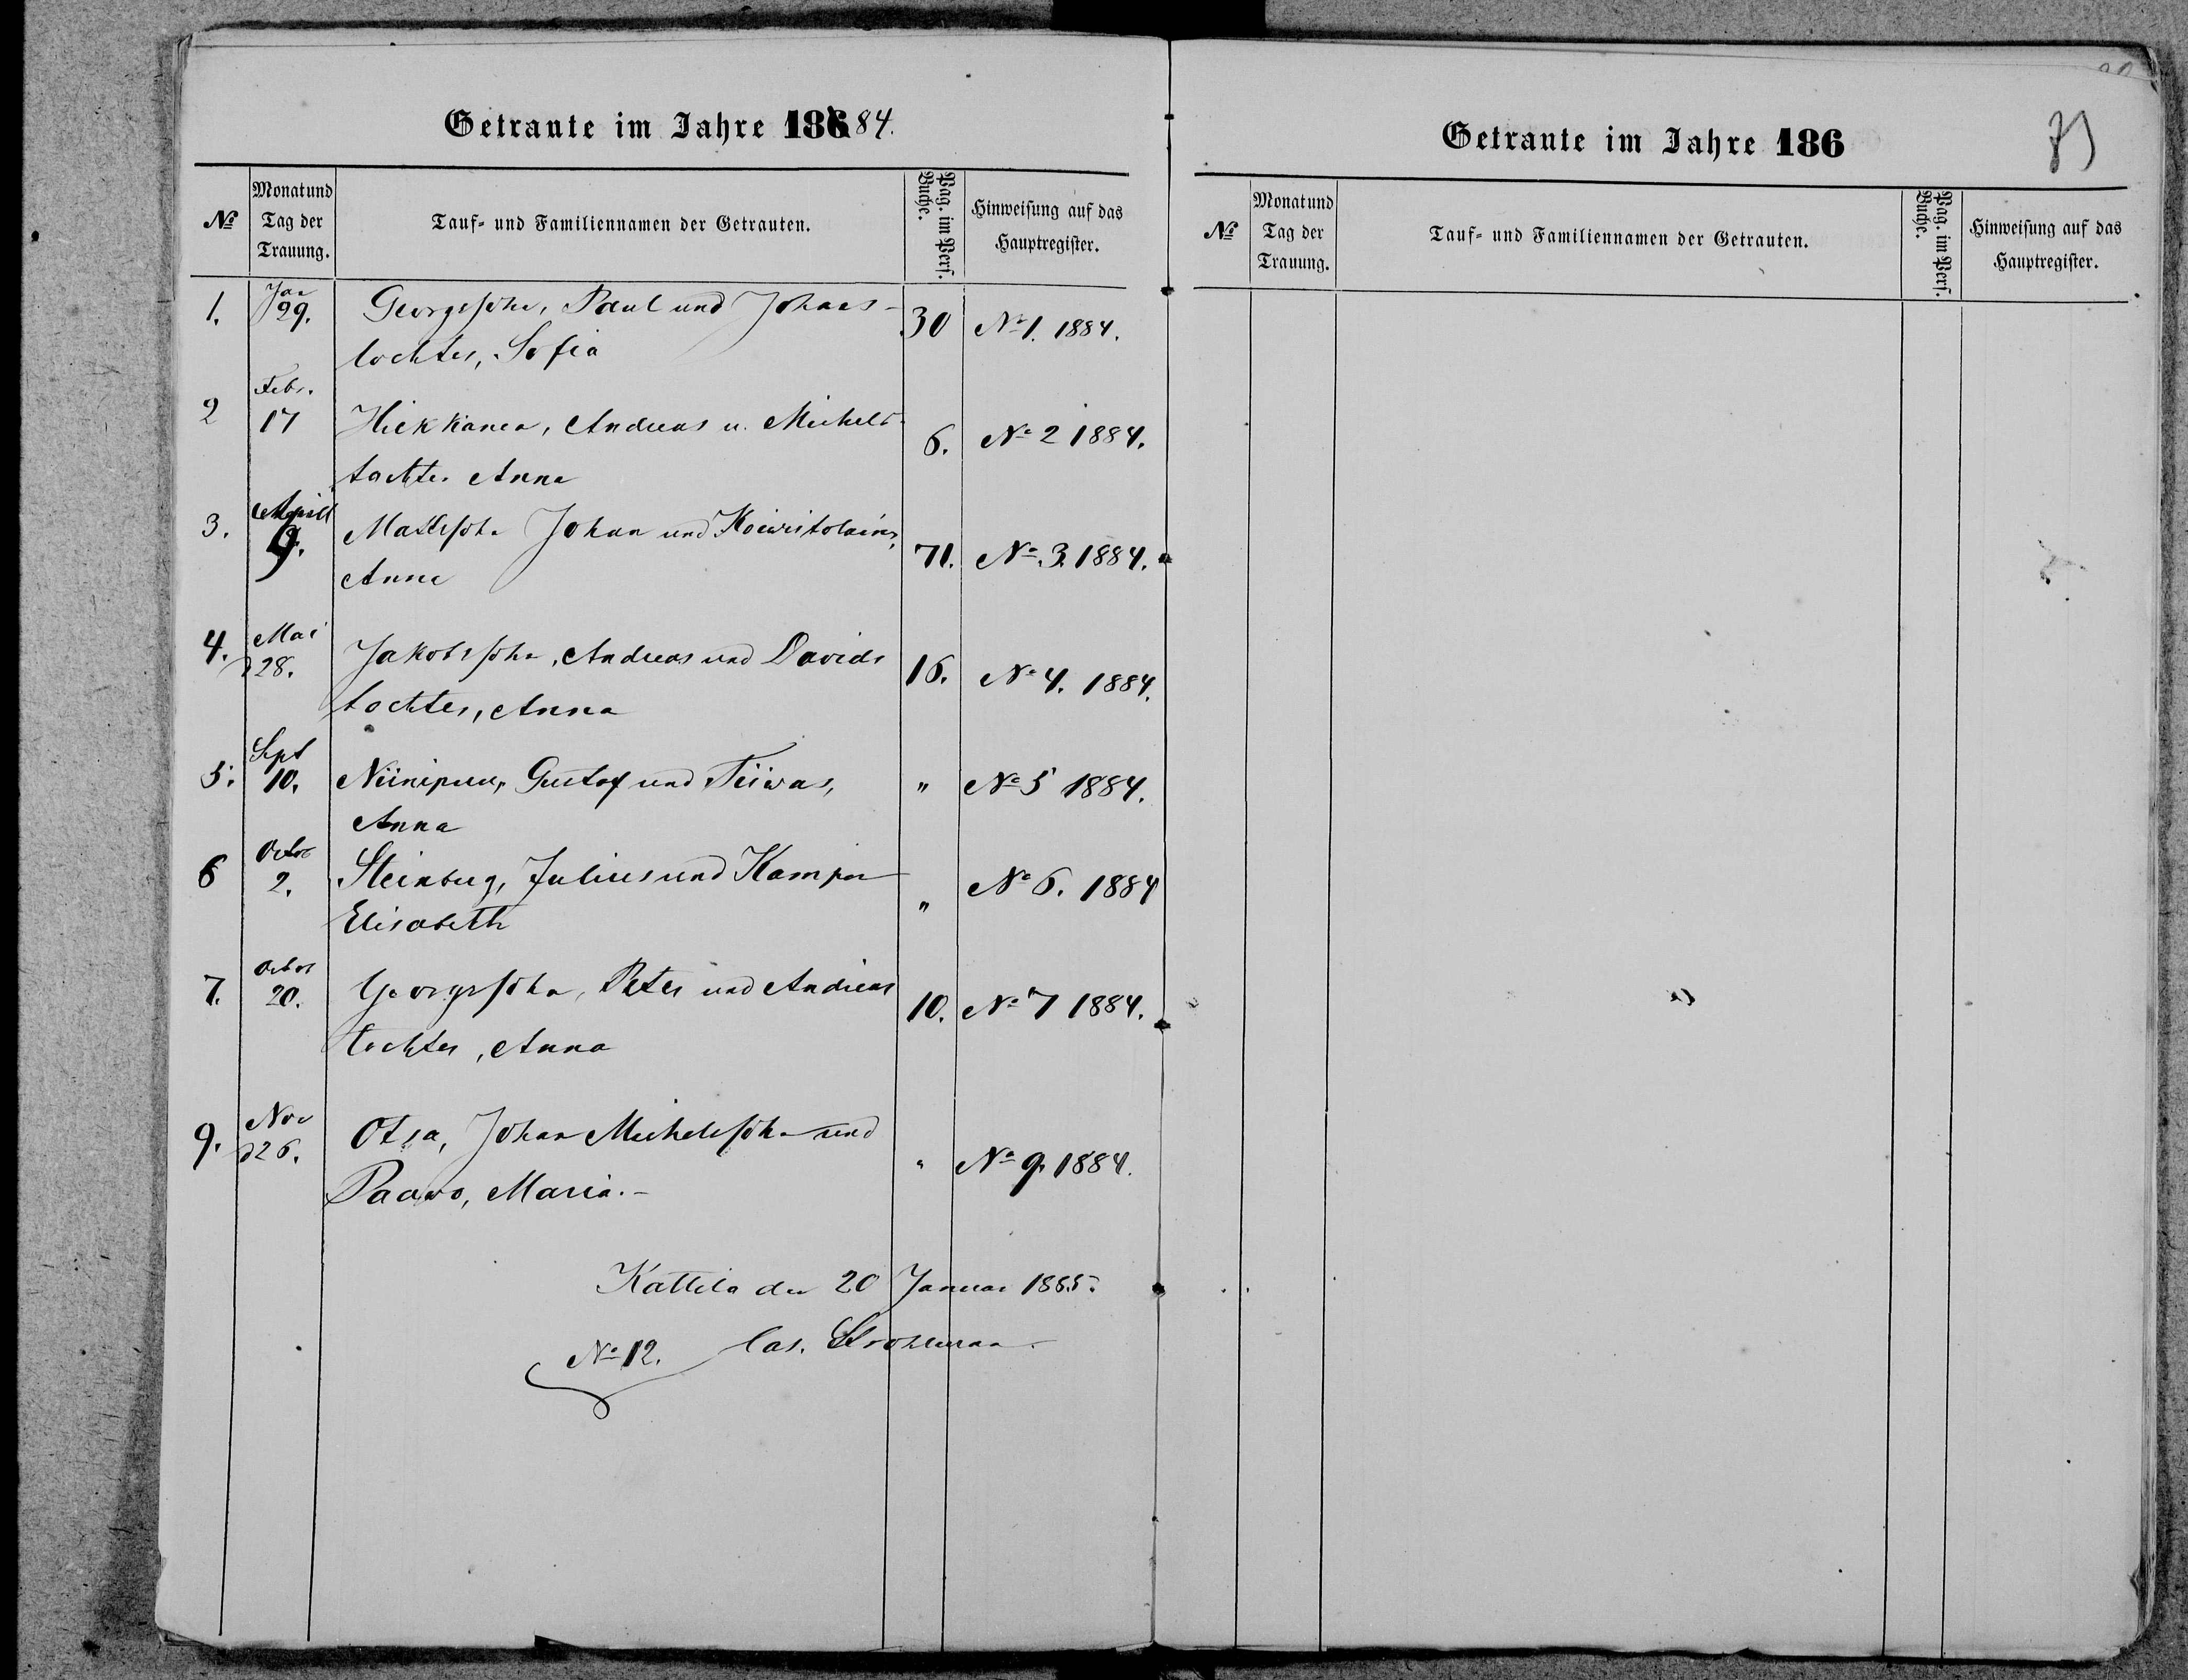 Getraute im Jahre 18684.
№
Monat und
Tag der
Trauung.
Tauf- und Familiennamen der Getrauten.
Pag. im Pers.
Buche.
Hinweisung auf das
Hauptregister.
1. Jan 29. Georgssohn, Paul und Johans- 30 № 1. 1884.
tochter, Sofia
2 Febr. 17 Hiekkanen, Andreas u. Michels- 6. № 2 1884.
tochter Anna
3. April 9. Mattssohn Johan und 71. № 3. 1884.
Anna
4. Mai 28. Jakobssohn, Andreas und Davids 16. № 4. 1884.
tochter, Anna
5. Sept 10. Gustaf und Anna " № 5 1884.
6 Octbr 2. Steinberg, Julius und " № 6. 1884
Elisabeth
7. Octbr 20. Georgssohn, Peter und Andreas 10. № 7 1884.
tochter, Anna
9. Nov 26. Otsa, Johan Michelssohn und " № 9. 1884.
Paawo, Maria.-
Kattila den 20 Januar 1885.
№ 12.
Getraute im Jahre 186
№
Monat und
Tag der
Trauung.
Tauf- und Familiennamen der Getrauten.
Pag. im Pers.
Buche.
Hinweisung auf das
Hauptregister.